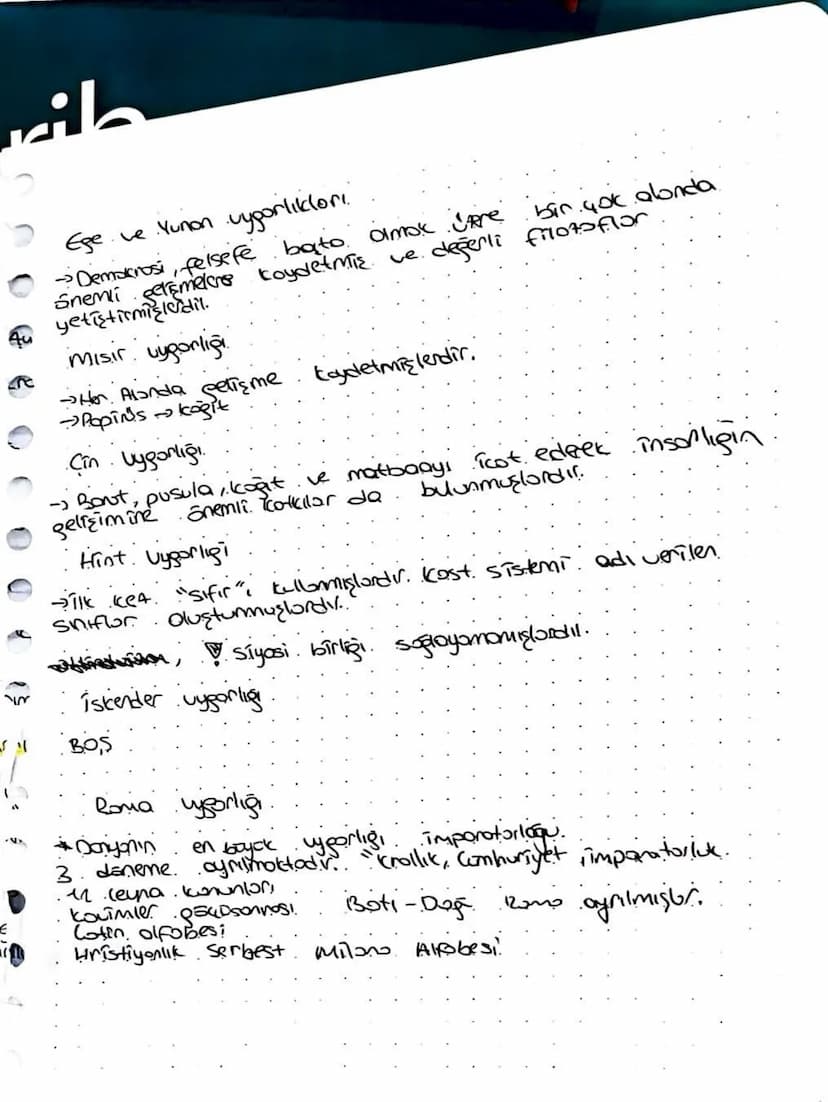 rib
Ege ve Yunan uygarlıkları
→Demokrasi, felsefe başta olmak üzre bir çok alanda
önemli gelişmelere kaydetmiş ve değerli filozoflar
yetiştirmişlerdir.
Mısır uygarlığı
→Her Alanda gelişme kaydetmişlerdir.
→Papirüs → kağıt
Çin Uygarlığı
→ Barut, pusula, kağıt ve matbaayı icat ederek insanlığın
gelişimine önemli katkılar da bulunmuşlardır.
Hint Uygarlığı
→İlk kez "sıfır"ı kullanmışlardır. Kast sistemi adı verilen
sınıflar oluşturmuşlardır.
! Siyasi birliği sağlayamamışlardır.
İskender uygarlığı
BOŞ
Roma uygarlığı
* Dünyanın en büyük uygarlığı imparatorloğu.
3 döneme ayrılmaktadır. "Krallık, Cumhuriyet, imparatorluk.
12 Levha kanunları
Kavimler göçü sonrası Batı-Doğ Roma ayrılmıştır.
Latin alfabesi
Hristiyanlık Serbest Milano Alfabesi